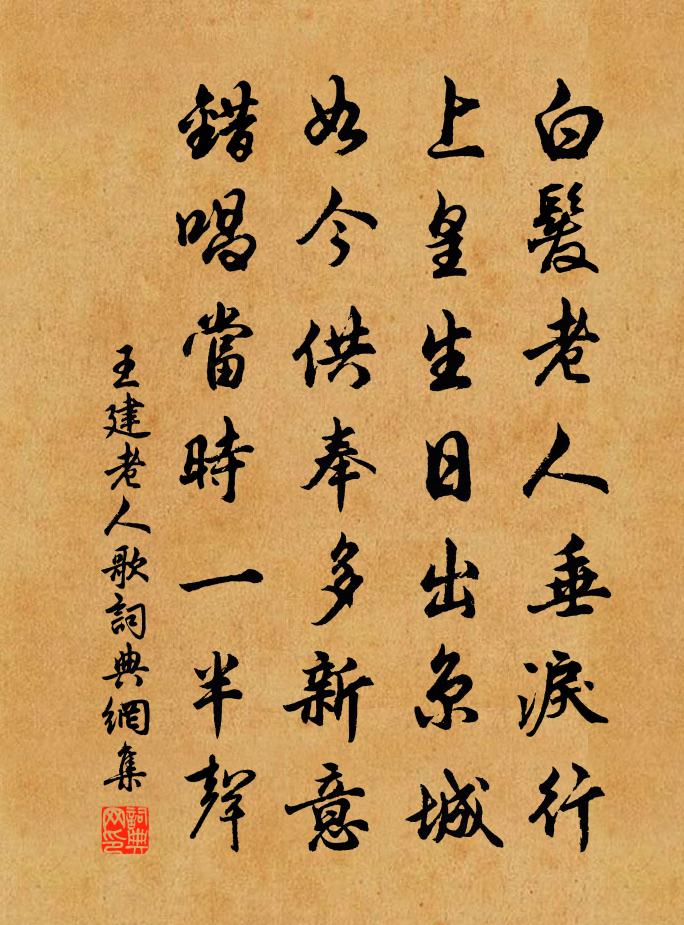 白髮老人垂淚行
上皇生日出京城
如今供奉多新意
錯唱當時一半聲
王建老人歌詞典網集
詞典网印